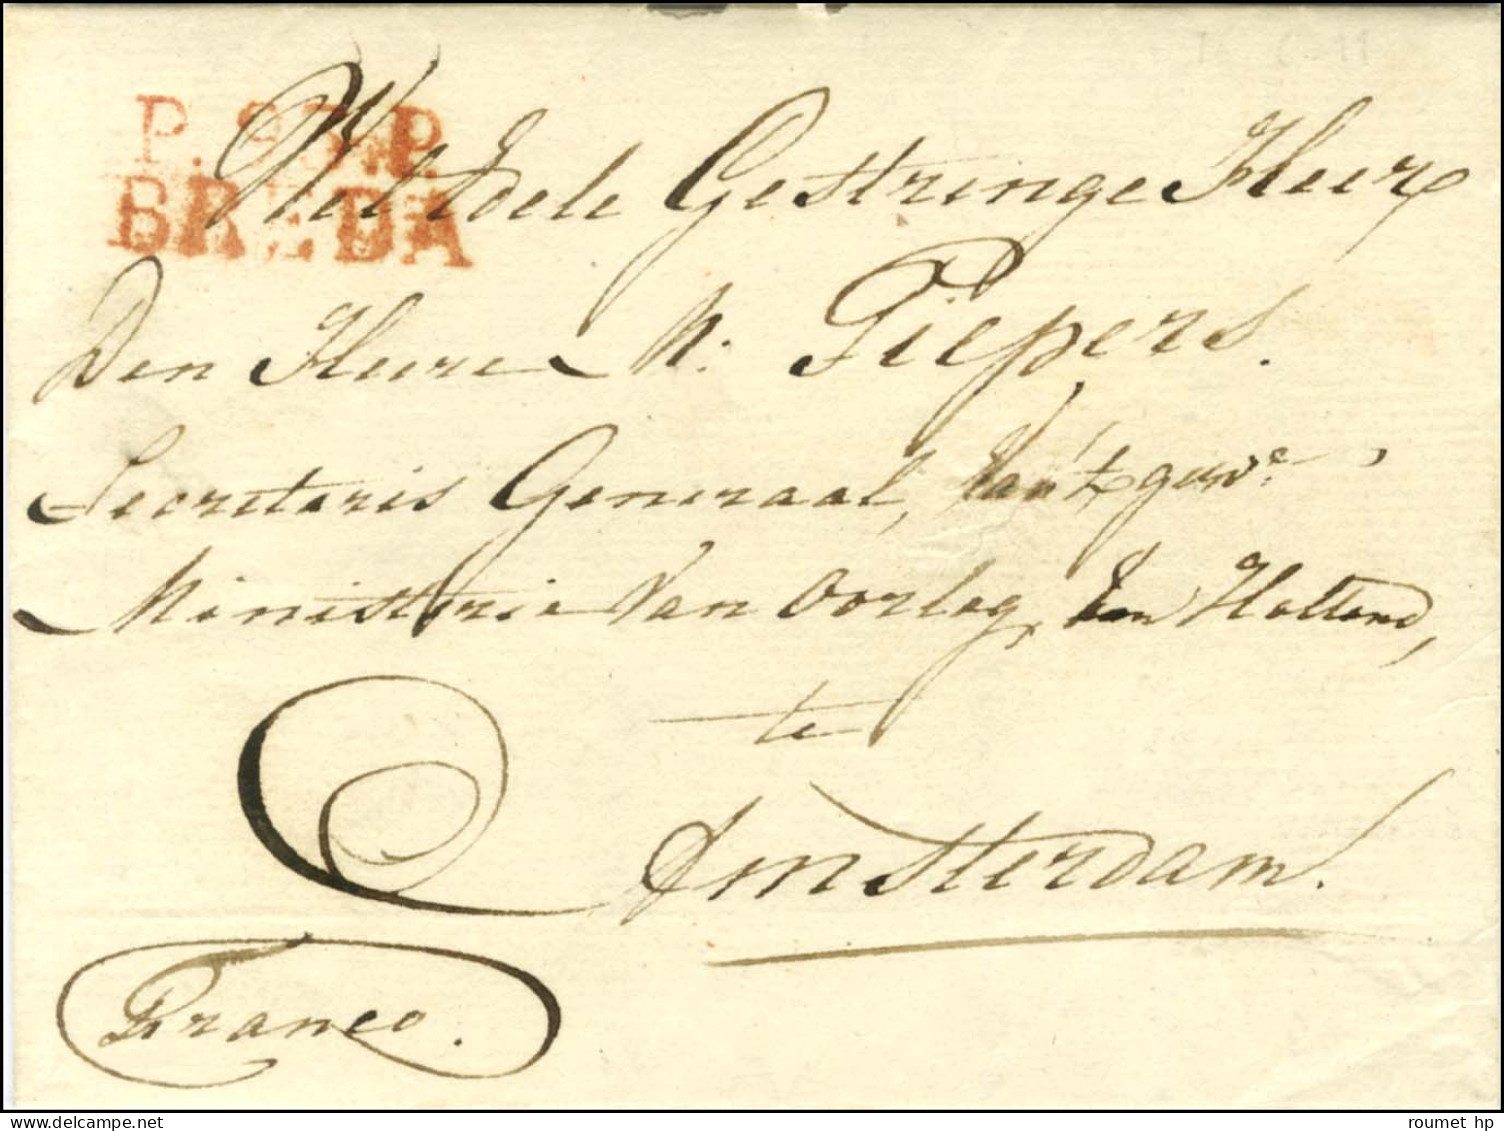 P. 93. P.
BREDA
Wel Edele Gestrenge Heer
Den Heere M: Piepers.
Secretaris Generaal, Van't gew.e
Ministerie Van Oorlog, van Holland,
te
Amsterdam.
Franco.
roumet hp